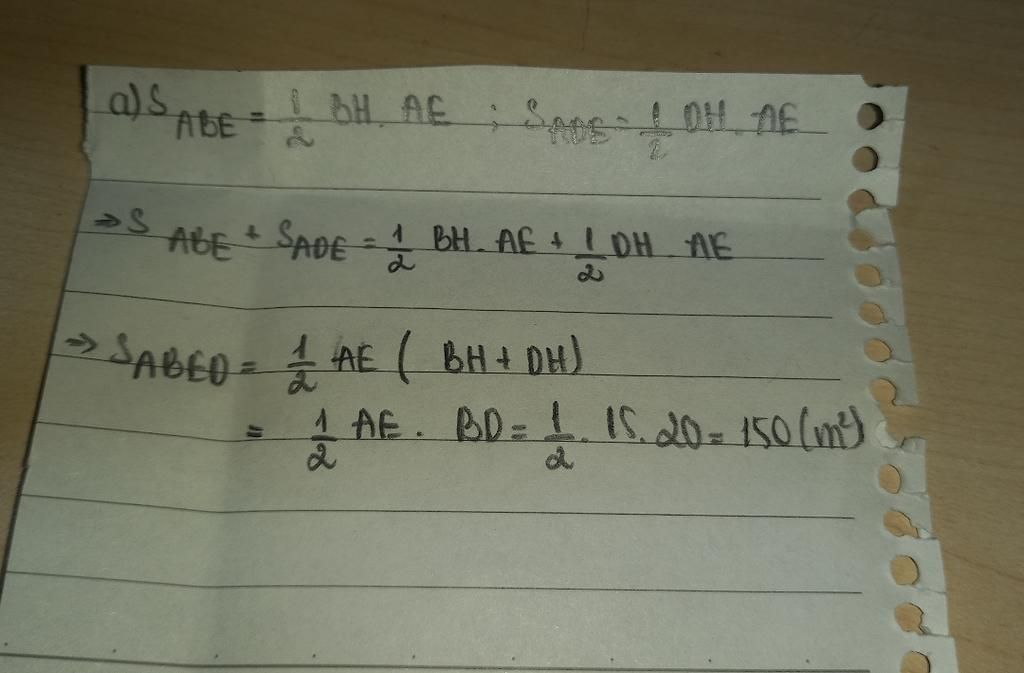 a) S ABE = 1/2 BH. AE ; S ADE = 1/2 DH. AE
⇒ S ABE + S ADE = 1/2 BH. AE + 1/2 DH AE
⇒ S ABED = 1/2 AE ( BH + DH)
= 1/2 AE. BD = 1/2 . 15. 20 = 150 (m²)